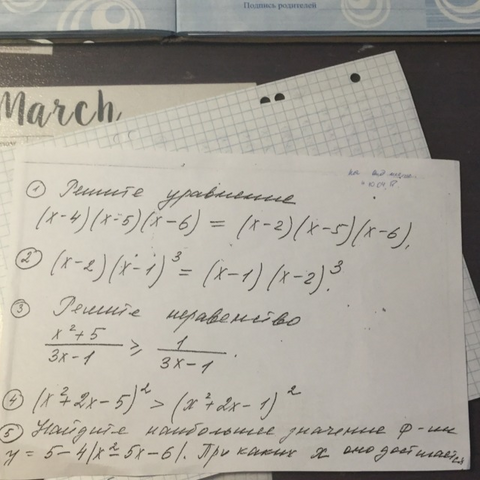 Подпись родителей
March
① Решите уравнение
(x-4)(x-5)(x-6) = (x-2)(x-5)(x-6).
② (x-2)(x-1)³ = (x-1)(x-2)³.
③ Решите неравенство
(x²+5)/(3x-1) ≥ 1/(3x-1).
④ (x²+2x-5)² > (x²+2x-1)²
⑤ Найдите наибольшее значение ф-ии
y = 5-4|x²-5x-6|. При каких x оно достигается